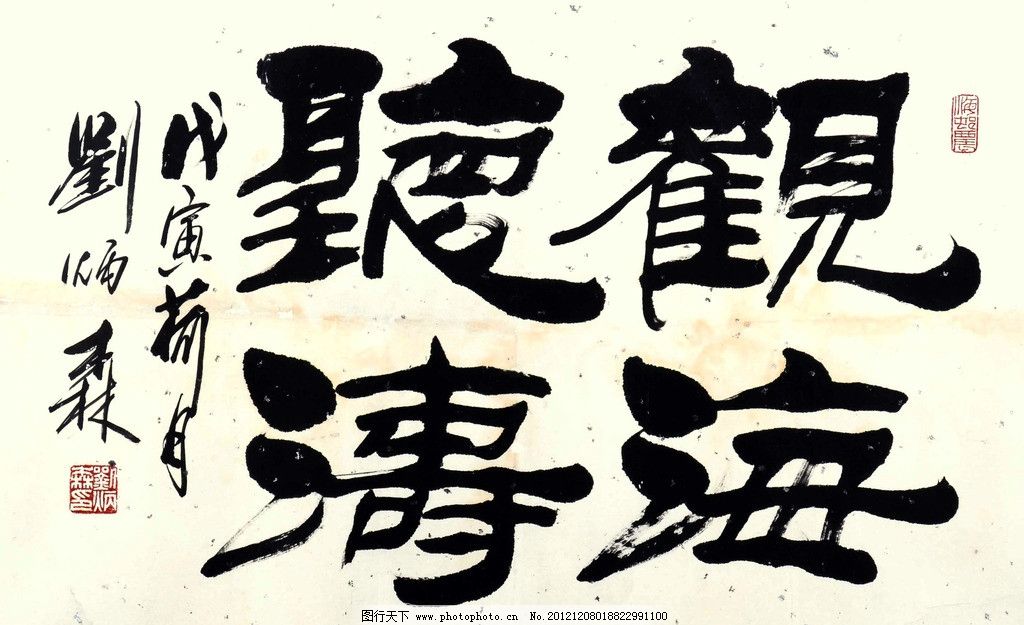 觀海
聽濤
戊寅荷月
劉炳森
劉炳森印
图行天下 www.photophoto.cn No.20121208018822991100